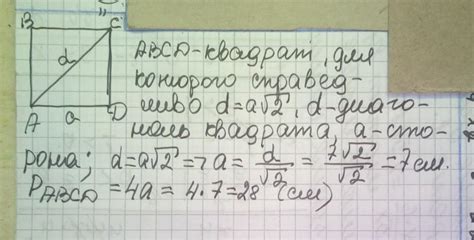 B C
d
A a D
ABCD-квадрат, для
которого справед-
ливо d=a√2, d-диаго-
наль квадрата, a-сто-
рона; d=a√2 => a= d/√2 = 7√2/√2 =7см.
P_ABCD =4a=4·7=28 (см)